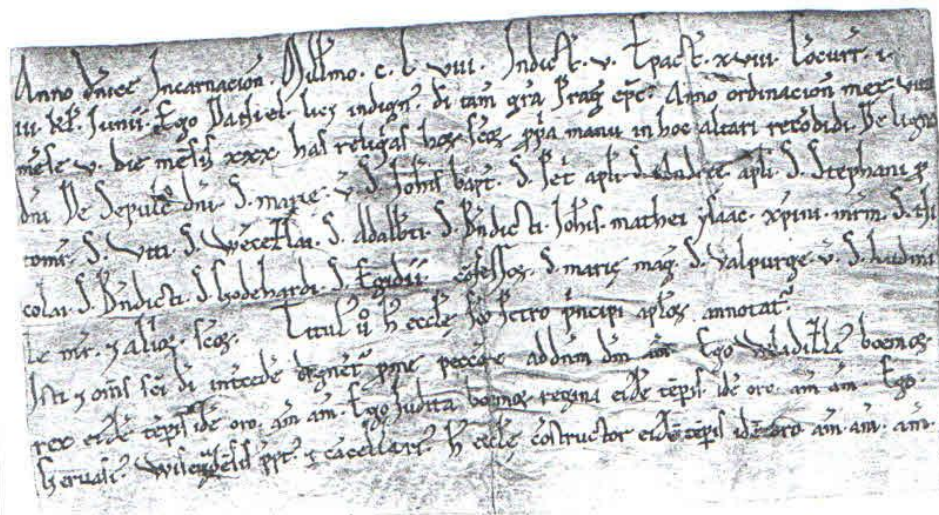 Anno dnice Incarnacion. Millmo. c. l. viii. Indict. v. Epact. xviii. Cocurr. i.
iii. kl. Junii. Ego Daniel. licz indign. di tam gra Prag epc. Anno ordination mee viiii
mse v. die msis xxx has reliqas hoz scoz ppa manu in hoc altari recodidi. De ligno
dni De Sepulc dni. S. marie. v. S. Johis bapt. S. Pet apli. S. Andree. apli. S. Stephani p
tomr. S. Viti. S. Wecezlai. S. Adalbti. S. Bndicti. Johis. mathei ysaac. xpini. mrm. S. Ni
colai. S. Bndicti. S. Godehardi. S. Egidii. cfessoz. S. marie mag. S. Valpurge. v. S. ludmi
le mr. 7 alioz scoz. Titul u h eccle sco Petro pncipi aploz annotat.
Isti 7 oms sci di intcede dignet p me peccore ad dnm dm am. Ego Wladizla boemoz
rex eide tepis ide oro. am am. Ego Judita boemoz regina eide tepis ide oro. am am. Ego
Geruasi. Wisegdesis ppt. 7 cacellari. h eccle costructor eide tepis ide oro am. am. am.